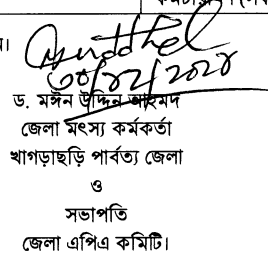 ৩০/১২/২০২৪
ড. মঈন উদ্দিন আহমদ
জেলা মৎস্য কর্মকর্তা
খাগড়াছড়ি পার্বত্য জেলা
ও
সভাপতি
জেলা এপিএ কমিটি।